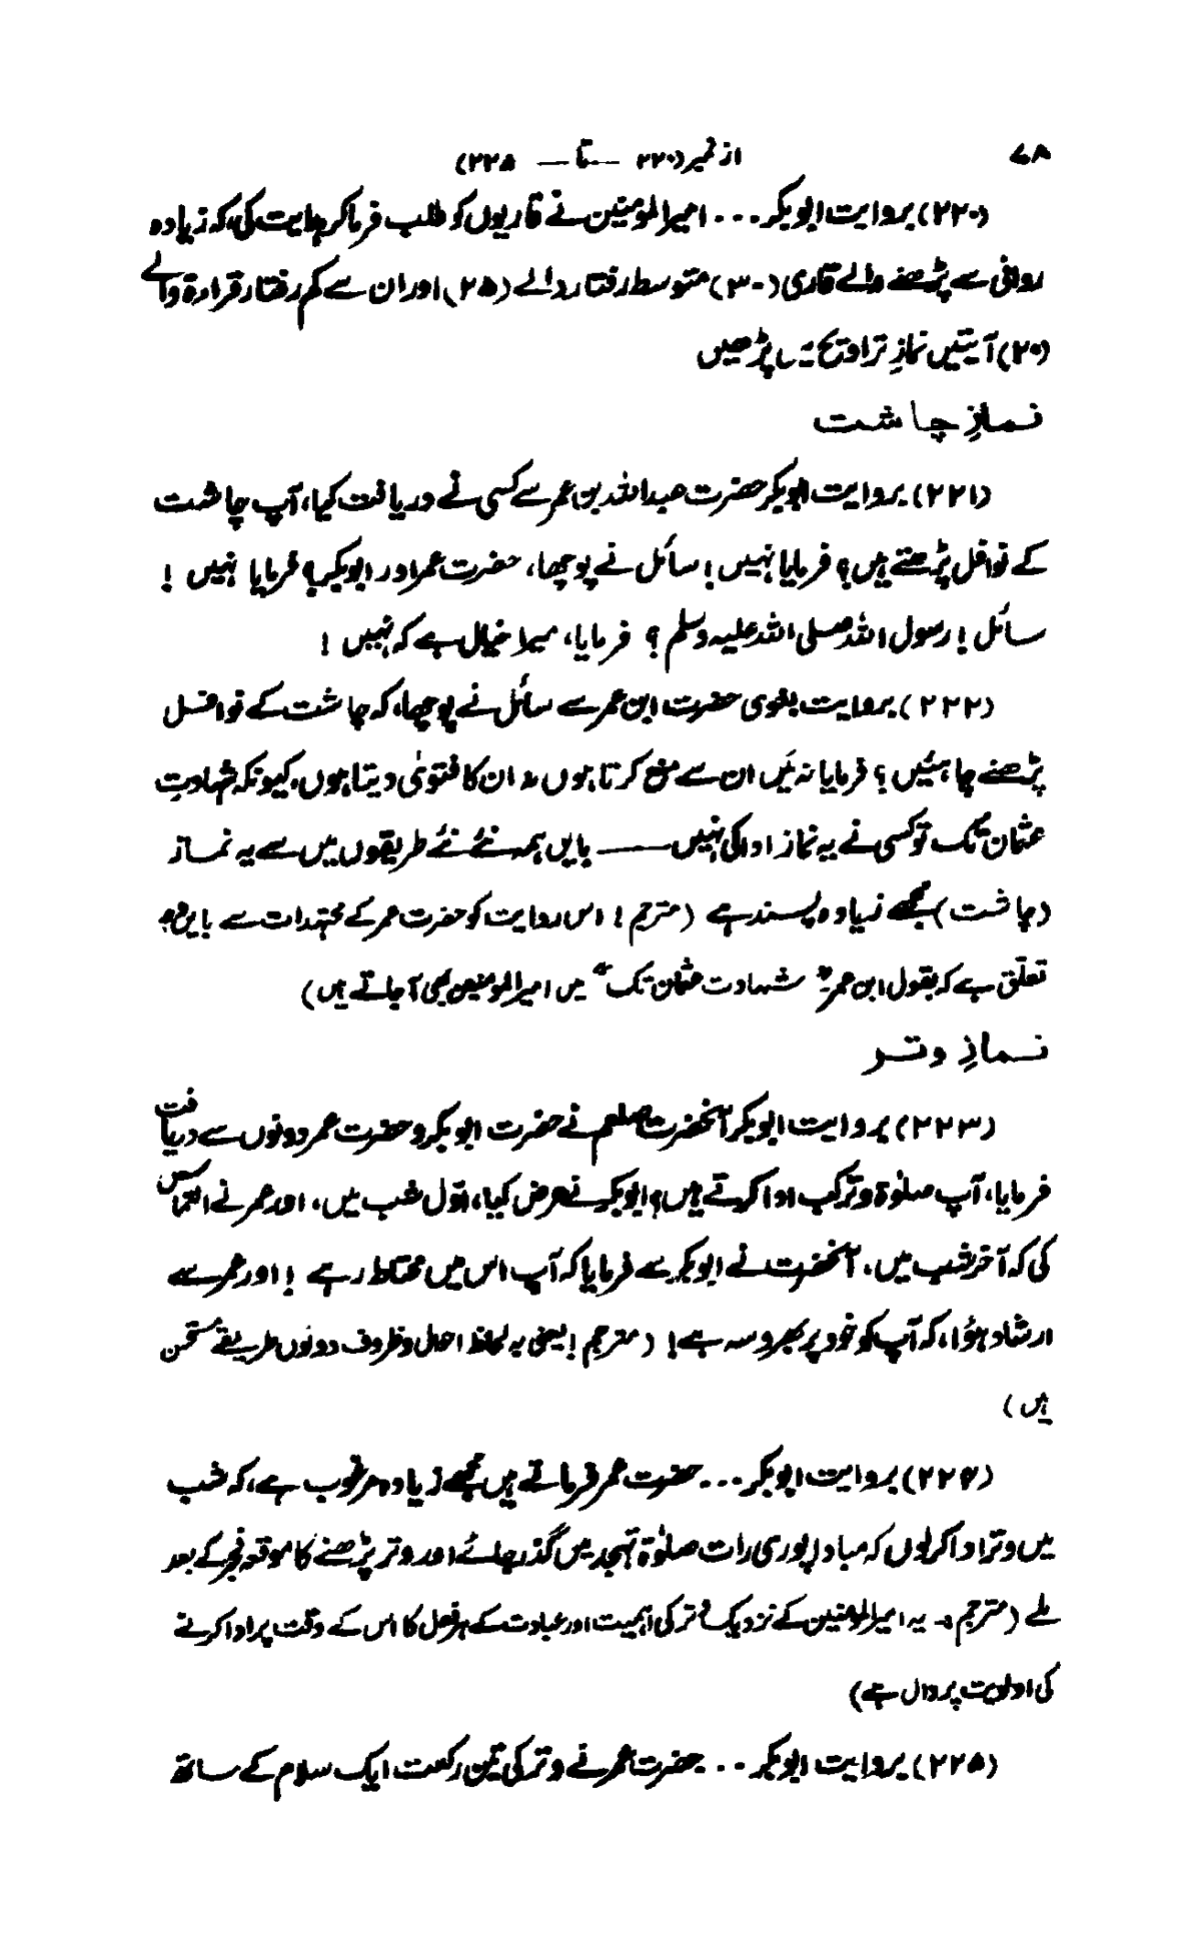 ۷۸ از نمبر (۲۲۰ — تا — ۲۲۵)
(۲۲۰) بروایت ابوبکر... امیرالمومنین نے قاریوں کو طلب فرما کر ہدایت کی، کہ زیادہ
روانی سے پڑھنے والے قاری (۳۰) متوسط رفتار والے (۲۵) اور ان سے کم رفتار قراءۃ والے
(۲۰) آیتیں نمازِ تراویح میں پڑھیں
نمازِ چاشت
(۲۲۱) بروایت ابوبکر حضرت عبداللہ بن عمر سے کسی نے دریافت کیا، آپ چاشت
کے نوافل پڑھتے ہیں؟ فرمایا نہیں! سائل نے پوچھا، حضرت عمر اور ابوبکر؟ فرمایا نہیں !
سائل! رسول اللہ صلی اللہ علیہ وسلم ؟ فرمایا، میرا خیال ہے کہ نہیں !
(۲۲۲) بروایت بغوی حضرت ابن عمر سے سائل نے پوچھا، کہ چاشت کے نوافل
پڑھنے چاہئیں؟ فرمایا نہ میں ان سے منع کرتا ہوں نہ ان کا فتویٰ دیتا ہوں، کیونکہ شہادتِ
عثمان تک تو کسی نے یہ نماز ادا کی نہیں —— بایں ہمہ نئے نئے طریقوں میں سے یہ نماز
(چاشت) مجھے زیادہ پسند ہے (مترجم! اس روایت کو حضرت عمر کے مجتہدات سے بایں وجہ
تعلّق ہے کہ بقول ابن عمر "شہادت عثمان تک" میں امیرالمومنین بھی آجاتے ہیں)
نمازِ وتر
(۲۲۳) بروایت ابوبکر آنحضرت صلعم نے حضرت ابوبکر و حضرت عمر دونوں سے دریافت
فرمایا، آپ صلوٰۃ وتر کب ادا کرتے ہیں؟ ابوبکر نے عرض کیا، اوّل شب میں، اور عمر نے التماس
کی کہ آخر شب میں، آنحضرت نے ابوبکر سے فرمایا کہ آپ اس میں محتاط رہے ! اور عمر سے
ارشاد ہؤا، کہ آپ کو خود پر بھروسہ ہے! (مترجم! یعنی بہ لحاظ احوال و ظروف دونوں طریقے مستحسن
ہیں)
(۲۲۴) بروایت ابوبکر... حضرت عمر فرماتے ہیں مجھے زیادہ مرغوب ہے، کہ شب
میں وتر ادا کر لوں کہ مبادا پوری رات صلوٰۃ تہجد میں گذر جائے اور وتر پڑھنے کا موقعہ فجر کے بعد
ملے (مترجم :۔ یہ امیرالمومنین کے نزدیک وتر کی اہمیت اور عبادت کے ہر فعل کا اُس کے وقت پر ادا کرنے
کی اولویت پر دال ہے)
(۲۲۵) بروایت ابوبکر... حضرت عمر نے وتر کی تین رکعت ایک سلام کے ساتھ